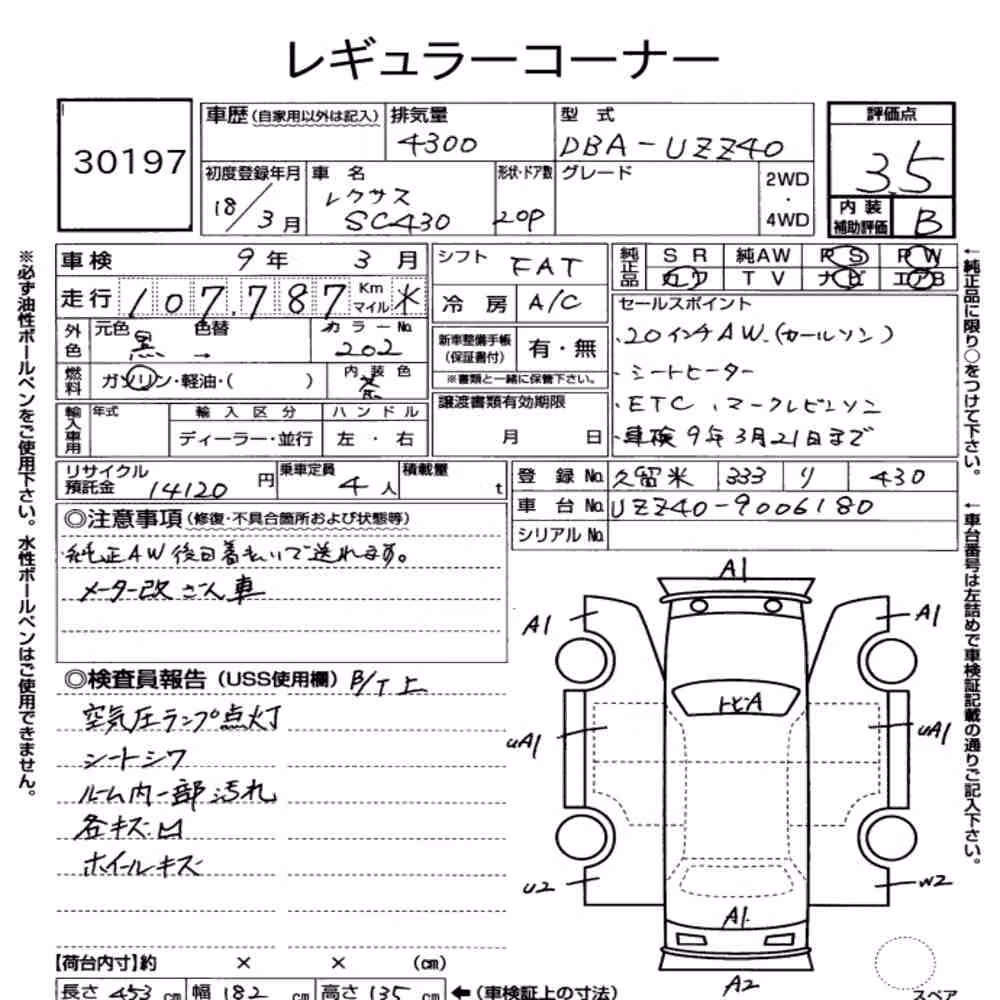 レギュラーコーナー
30197
車歴(自家用以外は記入)
排気量
4300
型 式
DBA-UZZ40
評価点
3.5
初度登録年月
18/3月
車 名
レクサス
SC430
形状・ドア数
2DP
グレード
2WD
・
4WD
内装
補助評価
B
車検 9年 3月
走行 107,787 Km マイル
外色 元色 黒 色替 → カラーNo. 202
燃料 ガソリン・軽油・( ) 内装色 茶
輸入車用 年式 輸入区分 ハンドル
ディーラー・並行 左・右
シフト FAT
冷房 A/C
新車整備手帳
(保証書付)
有・無
※書類と一緒に保管下さい。
譲渡書類有効期限
月 日
純正品 SR 純AW PS PW
カワ TV ナビ エアB
セールスポイント
・20インチAW.(カールソン)
・シートヒーター
・ETC、マークレビンソン
・車検9年3月21日まで
リサイクル
預託金 14120 円
乗車定員 4人
積載量 t
登録No. 久留米 333 り 430
車台No. UZZ40-9006180
シリアルNo.
◎注意事項(修復・不具合箇所および状態等)
純正AW後日着払いで送れます。
メーター改ざん車
◎検査員報告(USS使用欄) B/T上
空気圧ランプ点灯
シートシワ
ルーム内一部汚れ
各キズ凹
ホイールキズ
A1
A1
A1
トビA
uA1
uA1
U2
W2
A1
A2
スペア
【荷台内寸】約 × × (cm)
長さ 453 cm 幅 182 cm 高さ 135 cm ←(車検証上の寸法)
※必ず油性ボールペンをご使用下さい。水性ボールペンはご使用できません。
←純正品に限り○をつけて下さい。
←車台番号は左詰めで車検証記載の通りご記入下さい。